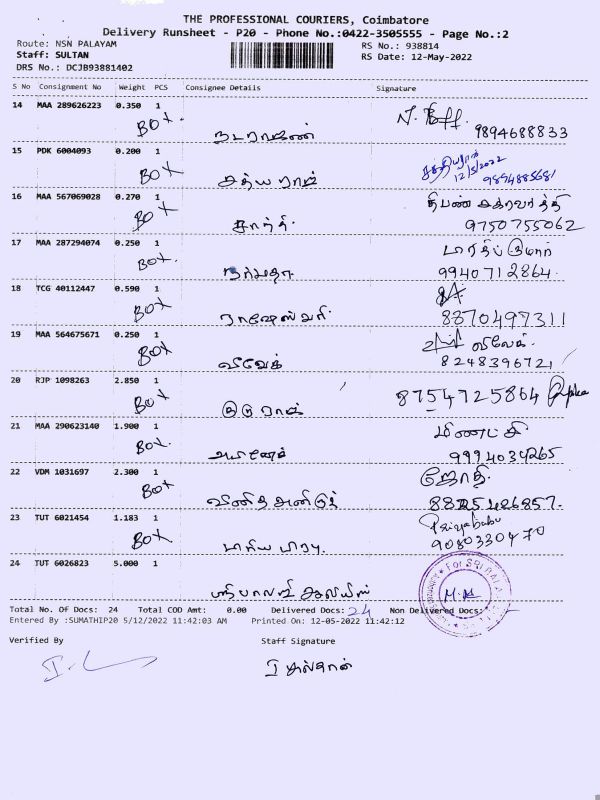 THE PROFESSIONAL COURIERS, Coimbatore
Delivery Runsheet - P20 - Phone No.:0422-3505555 - Page No.:2
Route: NSN PALAYAM
RS No.: 938814
Staff: SULTAN
RS Date: 12-May-2022
DRS No.: DCJB93881402
S No Consignment No Weight PCS Consignee Details Signature
14 MAA 289626223 0.350 1
BOX. 9894688833
15 PDK 6004093 0.200 1
BOX சத்யராஜ் 12/5/2022
9894885681
16 MAA 567069028 0.270 1
BOX சாந்தி. 9750755062
17 MAA 287294074 0.250 1
BOX. நர்மதா 9940712864.
18 TCG 40112447 0.590 1
BOX ராஜேஸ்வரி. 8870497311
19 MAA 564675671 0.250 1 விவேக்
BOX விவேக் 8248396721
20 RJP 1098263 2.850 1
BOX குருராஜ் 8754725864
21 MAA 290623140 1.900 1 மீனாட்சி
BOX. 9994034265
22 VDM 1031697 2.300 1 ஜோதி.
BOX
23 TUT 6021454 1.183 1 Priyababu
BOX 9080330470
24 TUT 6026823 5.000 1
ஸ்ரீ பாலாஜி
Total No. OF Docs: 24 Total COD Amt: 0.00 Delivered Docs: 24 Non Delivered Docs: -
Entered By :SUMATHIP20 5/12/2022 11:42:03 AM Printed On: 12-05-2022 11:42:12
Verified By Staff Signature